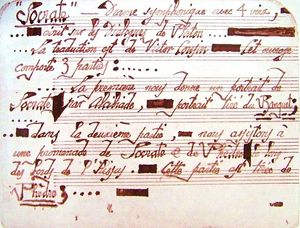 "Socrate" — Drame symphonique avec 4 voix,
écrit sur les Dialogues de Platon
La traduction est de Victor Cousin. Cet ouvrage
comporte 3 parties:
La première nous donne un portrait de
Socrate par Alcibiade. portrait tiré du Banquet
dans la deuxième partie, nous assistons à
une promenade de Socrate & de Phèdre
des bords de l'Ilissus. Cette partie est tirée de
Phèdre